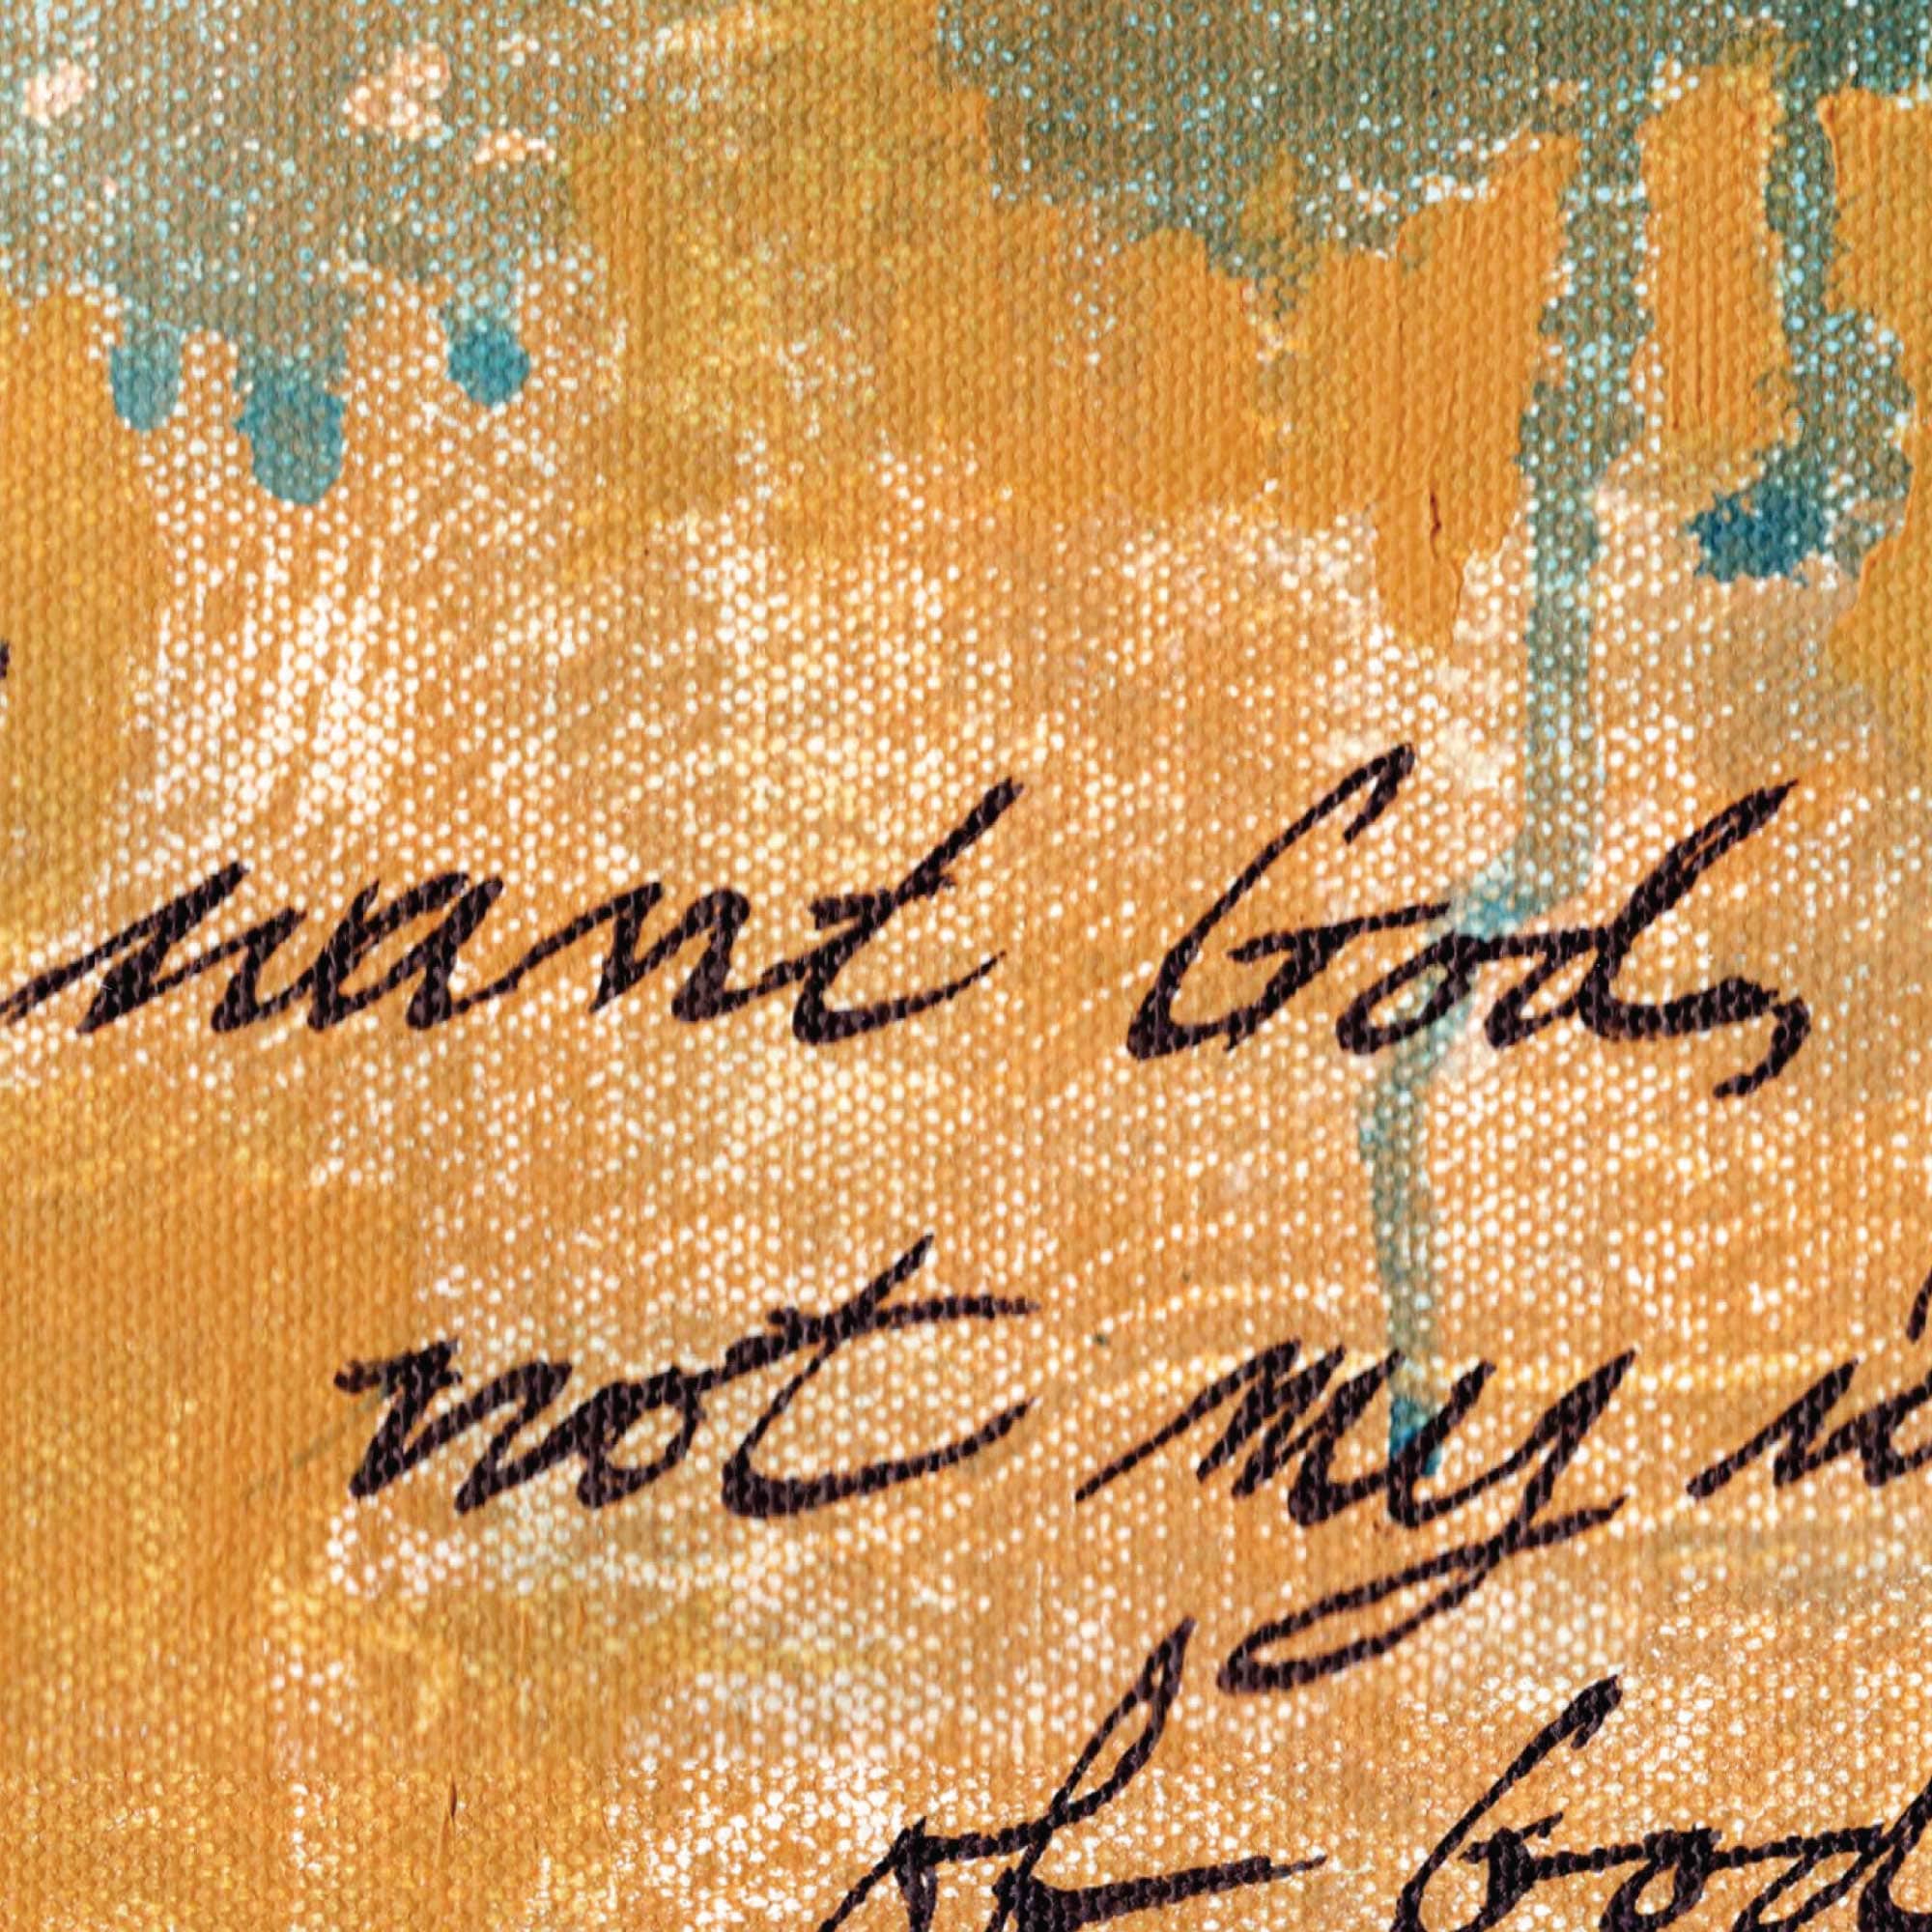 want God,
not my
of God